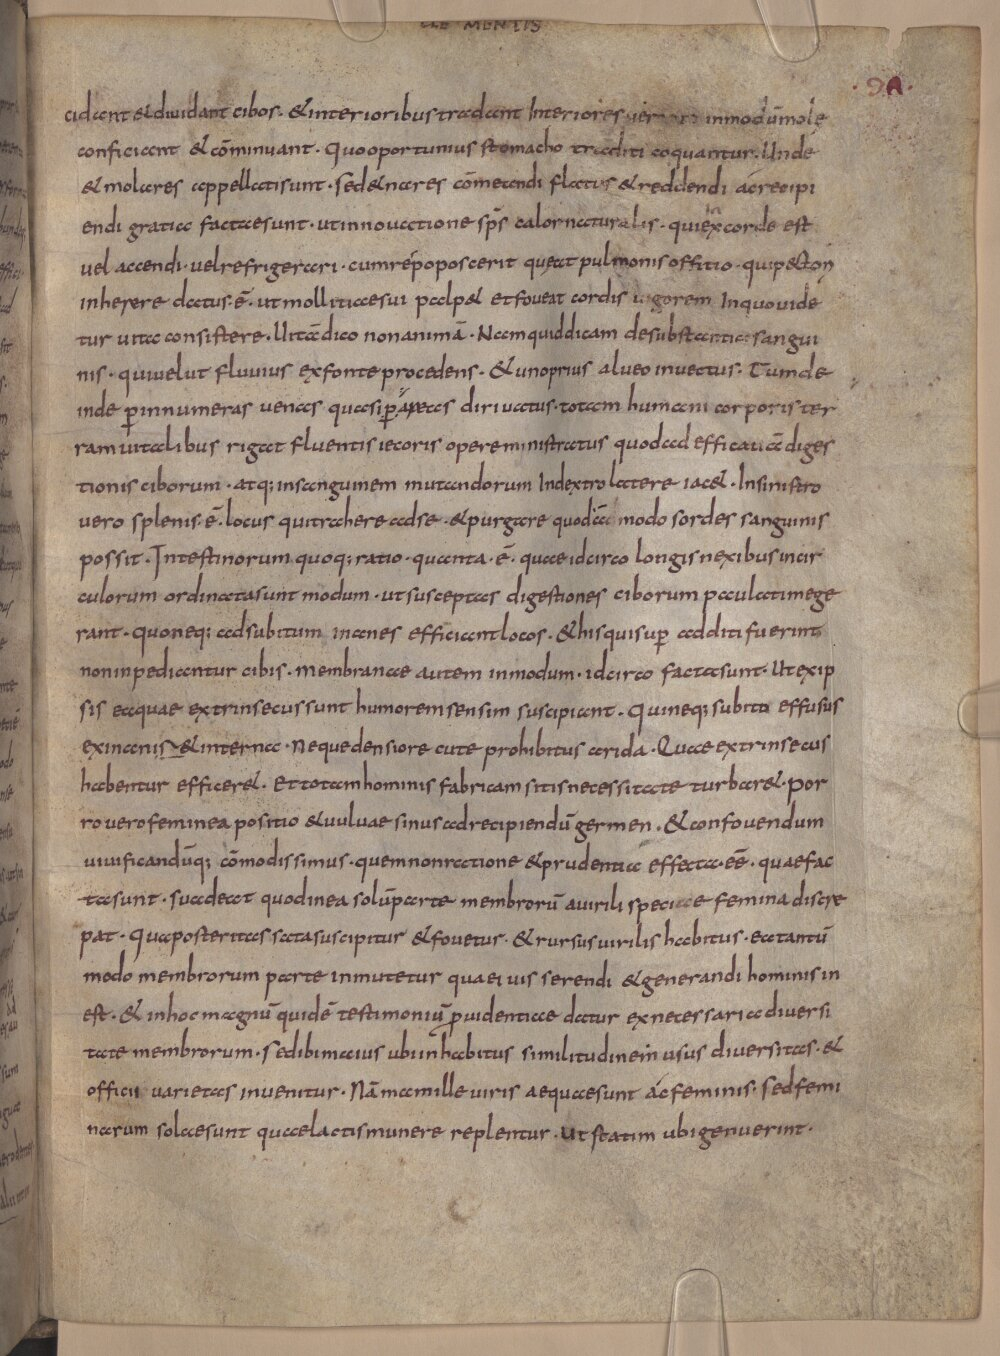 CLEMENTIS
9A
cidant & diuidant cibos. & interioribus tradant Interiores uero in modū mole
conficiant & cōminuant. Quo oportunius stomacho traditi coquantur. Unde
& molares appellati sunt. sed & nares cōmeandi flatus & reddendi ac recipi
endi gratia factae sunt. ut innouatione sp̄s calor naturalis. qui ex corde est
uel accendi. uel refrigerari. cum res poposcerit queat pulmonis offitio. qui pectori
inherere datus. ē. ut mollitiae sui palp& et foueat cordis uigorem In quo uide
tur uita consistere. Uitā dico non animā. Nam quid dicam de substantia sangui
nis. qui uelut fluuius ex fonte procedens. & uno prius alueo inuectus. Tum de
inde ꝑ innumeras uenas quasi ꝑ aqꝫ as diriuatus. totam humani corporis ter
ram uitalibus rigat fluentis iecoris opere ministratus quod ad efficatiā diges
tionis ciborum. atqꝫ in sanguinem mutandorum In dextro latere iac&. In sinistro
uero splenis. ē. locus qui trahere ad se. & purgare quodā modo sordes sanguinis
possit. Intestinorum quoqꝫ ratio. quanta. ē. quae idcirco longis nexibus in cir
culorum ordinata sunt modum. ut susceptas digestiones ciborum paulatim ege
rant. quo neqꝫ ad subitum inanes efficiant locos. & his qui suꝑ additi fuerint
non inpediantur cibis. membranae autem in modum. idcirco facta sunt. Ut ex ip
sis eaquae extrinsecus sunt humorem sensim suscipiant. Qui neqꝫ subito effusus
ex inanis & interna. Neque densiore cute prohibitus arida. Quae extrinsecus
habentur efficer&. Et totam hominis fabricam sitis necessitate turbar&. por
ro uero feminea positio & uuluae sinus ad recipiendū germen. & confouendum
uiuificandūqꝫ cōmodissimus. quem non ratione & prudentia effecta. eē. quae fac
ta sunt. suadeat quod in ea solū parte membrorū a uirili specie femina discre
pat. Qua posteritas sata suscipitur & fouetur. & rursus uirilis habitus. ea tantū
modo membrorum parte inmutetur quaei uis serendi & generandi hominis in
est. & in hoc magnū quidē testimoniū ꝓuidentiae datur ex necessaria diuersi
tate membrorum. sed ibi maius ubi in habitus similitudinem usus diuersitas. &
officii uarietas inuenitur. Nā mamille uiris aequae sunt ac feminis. sed femi
narum solae sunt quae lactis munere replentur. Ut statim ubi genuerint.